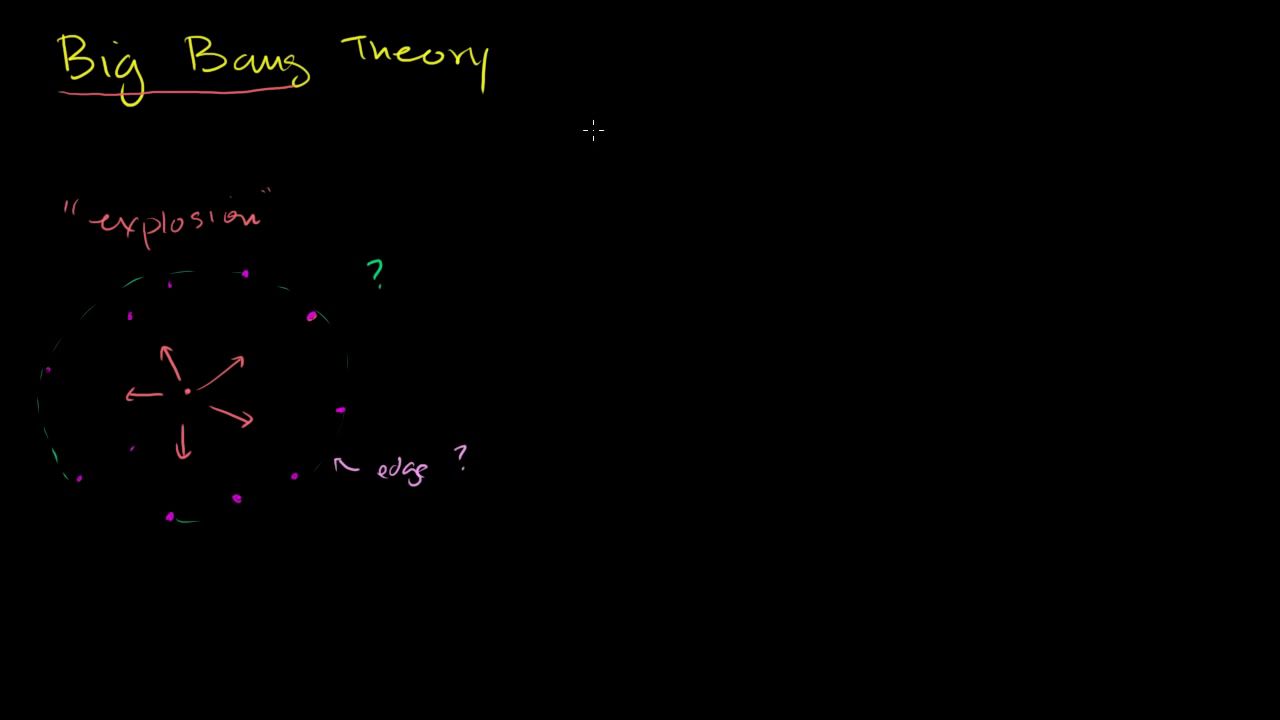 Big Bang Theory
"explosion"
?
edge ?